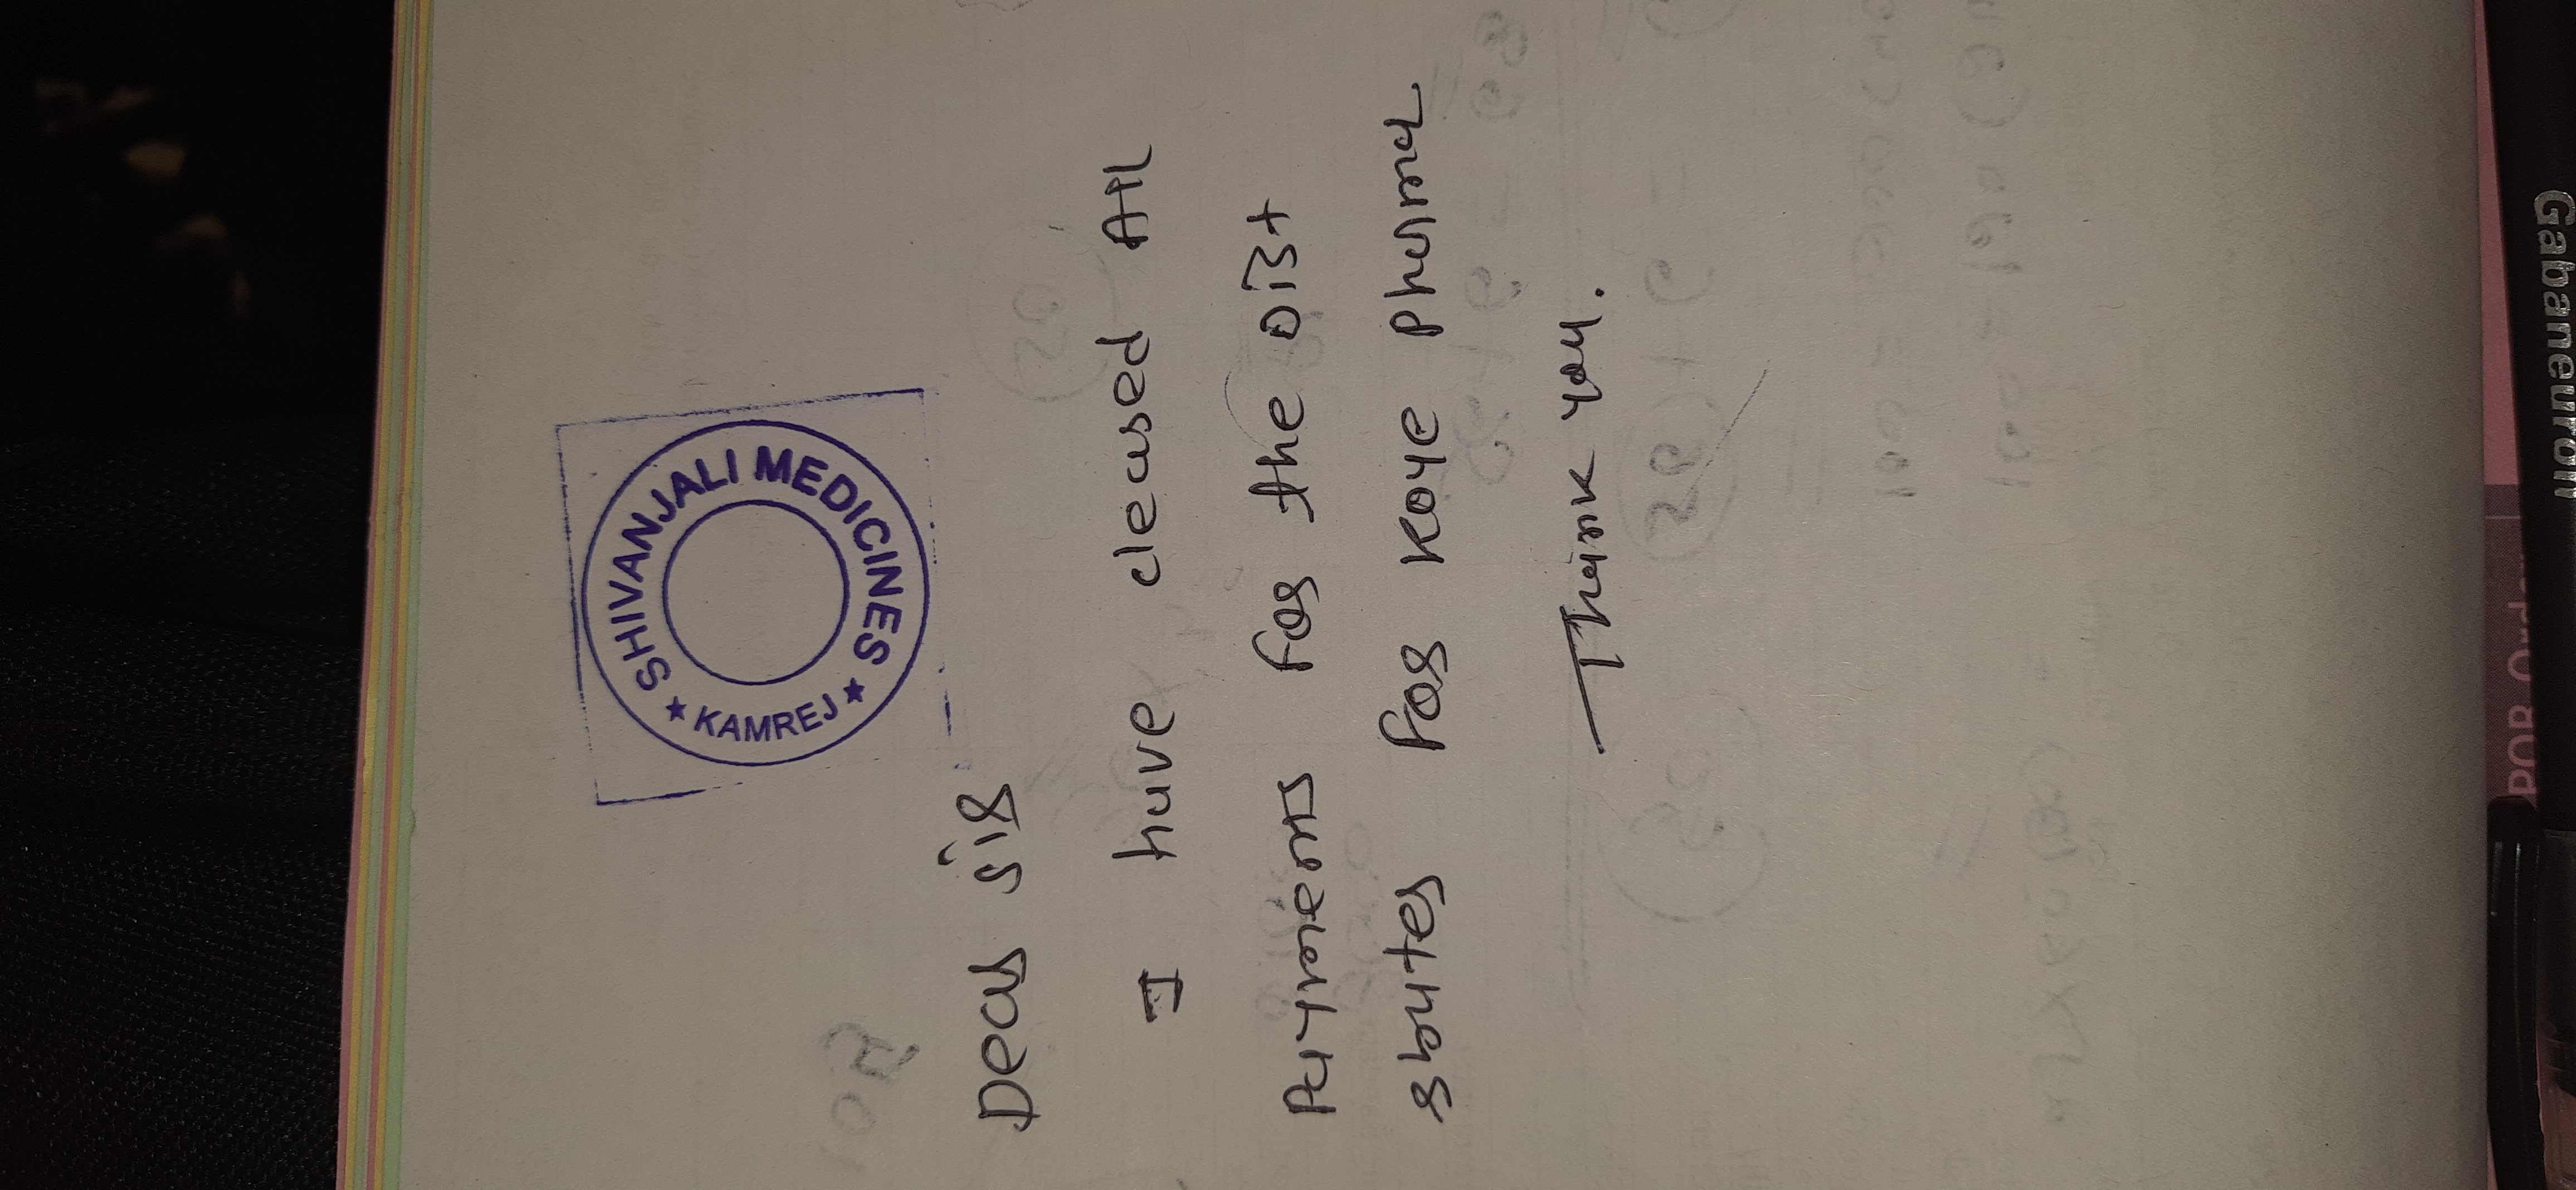 SHIVANJALI MEDICINES
★ KAMREJ ★
Dear sir
I have cleared All
Payments for the Dist
rbuter for Koye Pharma
Thank you.
Gabaneuron
POB Order